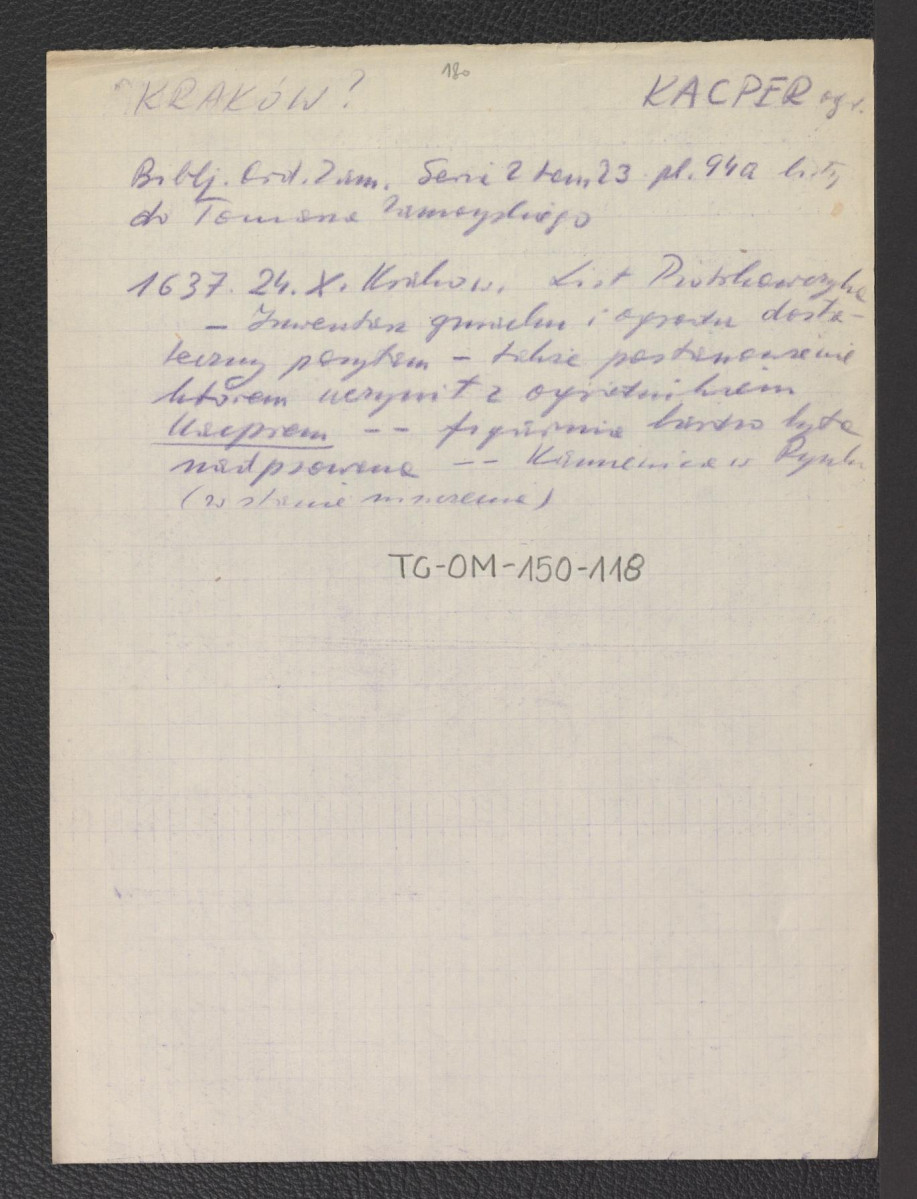 180
KRAKÓW?
KACPER ogr.
Biblj. Ord. Zam. Seria 2 tom 23 pl. 94a listy
do Tomasza Zamoyskiego
1637. 24. X. Kraków. List Piotrkowczyka
– Inwentarz gmachu i ogrodu dosta-
teczny posyłam – także postanowienie
którem uczynił z ogrodnikiem
Kacprem –– bardzo była
nadpsowana –– Kamienica w Rynku
(w stanie
TG-OM-150-118